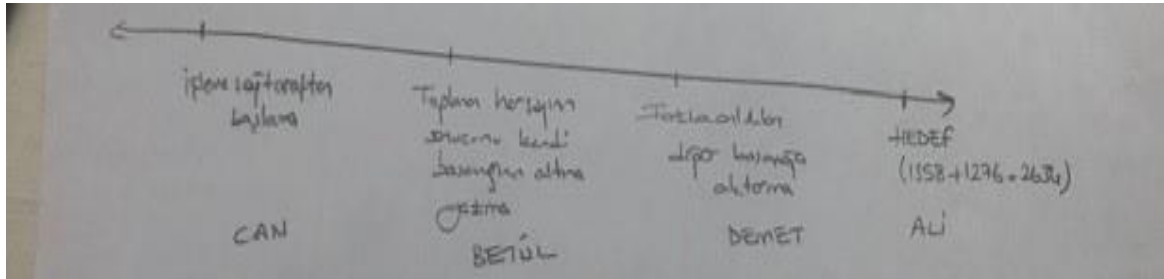 işleme sağ taraftan
başlama
CAN
Toplanan her sayının
sonucunu kendi
basamağının altına
yazma
BETÜL
Fazla onlukları
diğer basamağa
aktarma
DEMET
HEDEF
(1358+1276=2634)
ALİ